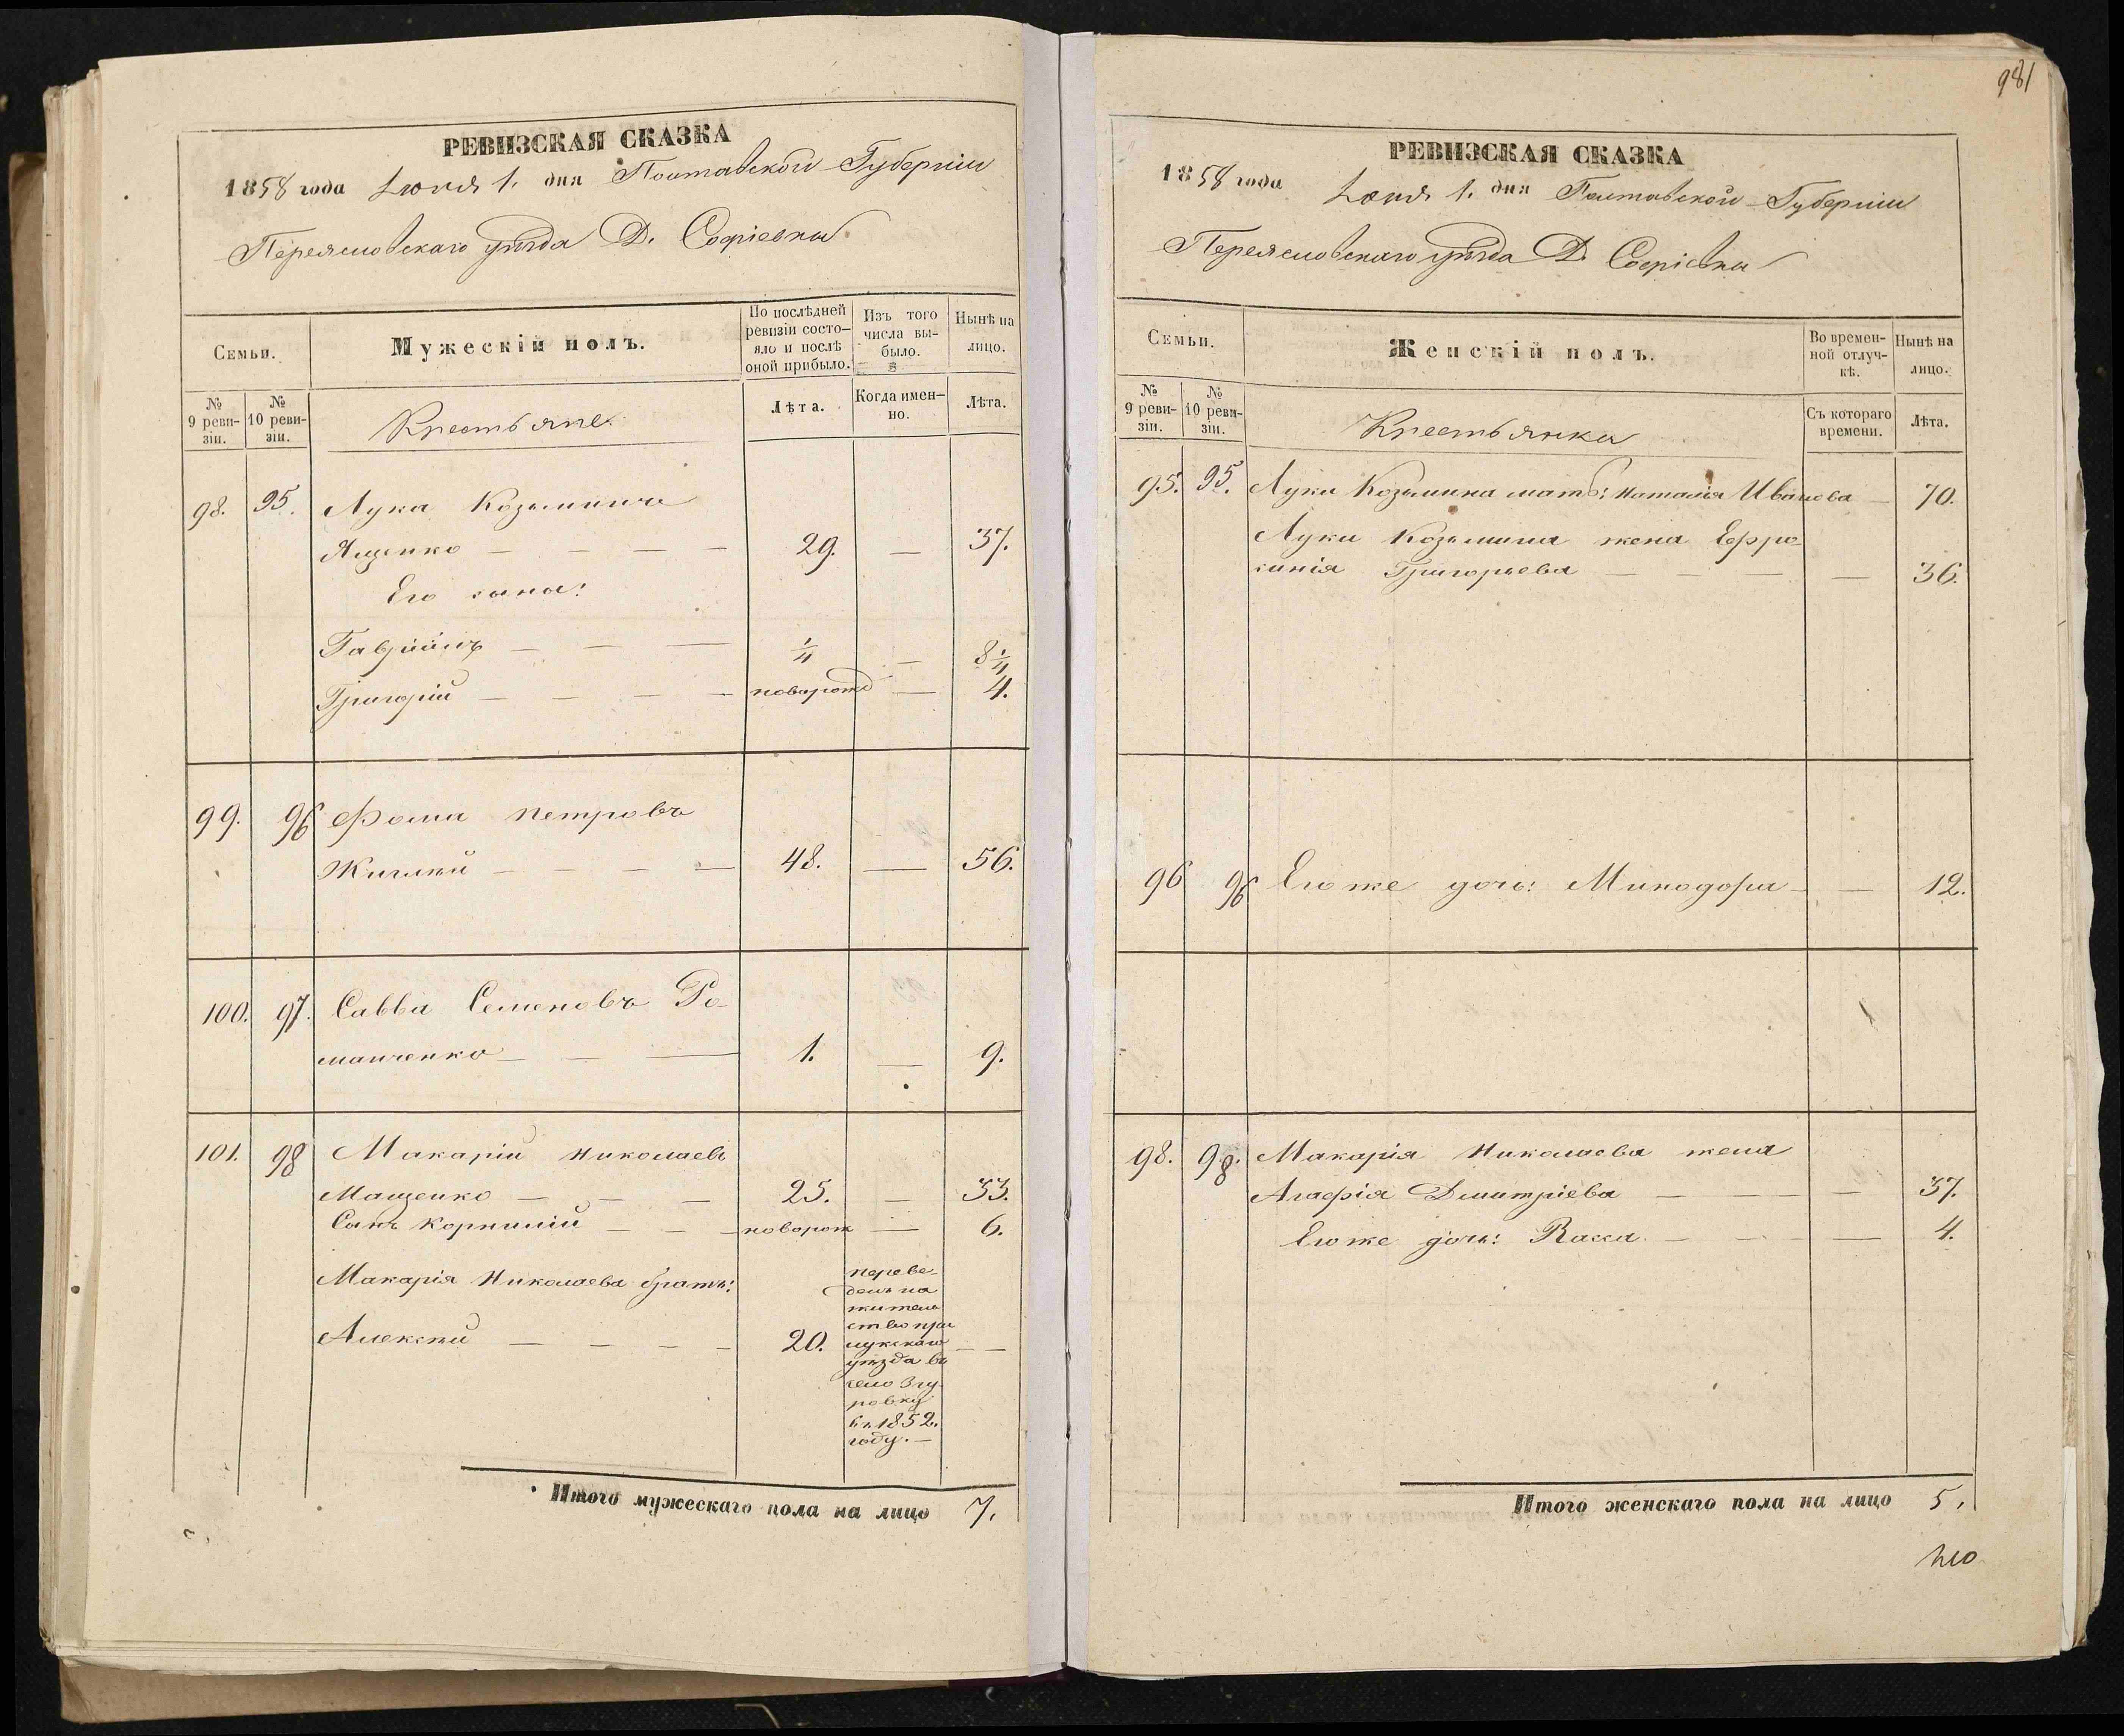 РЕВИЗСКАЯ СКАЗКА
1858 года Іюня 1. дня Полтавской Губерніи
Переясловскаго уѣзда Д. Софіевки
Семьи.
Мужескій полъ.
По послѣдней ревизіи состояло и послѣ оной прибыло.
Изъ того числа выбыло.
Нынѣ на лицо.
№ 9 ревизіи.
№ 10 ревизіи.
Крестьяне
Лѣта.
Когда именно.
Лѣта.
98. 95. Лука Козьминъ
Ященко — — — — 29. — 37.
Его сыны:
Гавріилъ — — — 1/4 — 8 1/4
Григорій — — — — новорожд — 4.
99. 96 Фома Петровъ
48. — 56.
100. 97. Савва Семеновъ Ро-
манченко — — — 1. — 9.
101. 98 Макарій Николаевъ
Мащенко — — — 25. — 33.
Сынъ Корнилій — — — новорож — 6.
Макарія Николаева братъ:
Алексѣй — — — — 20. — —
переве-
денъ на
житель
ство при
лукскаго
уѣзда въ
село Згу-
ровку
въ 1852.
году. —
Итого мужескаго пола на лицо 7.
981
РЕВИЗСКАЯ СКАЗКА
1858 года Іюня 1. дня Полтавской Губерніи
Переясловскаго уѣзда Д. Софіевки
Семьи.
Женскій полъ.
Во временной отлучкѣ.
Нынѣ на лицо.
№ 9 ревизіи.
№ 10 ревизіи.
Крестьянки
Съ котораго времени.
Лѣта.
95. 95. Луки Козьмина мать: Наталія Иванова — 70.
Луки Козьмина жена Ефро-
синія Григорьева — — — — 36.
96 96 Его же дочь: Минодора — — 12.
98. 98. Макарія Николаева жена
Агафія Дмитріева — — — — 37.
Его же дочь: Васса — — — 4.
Итого женскаго пола на лицо 5.